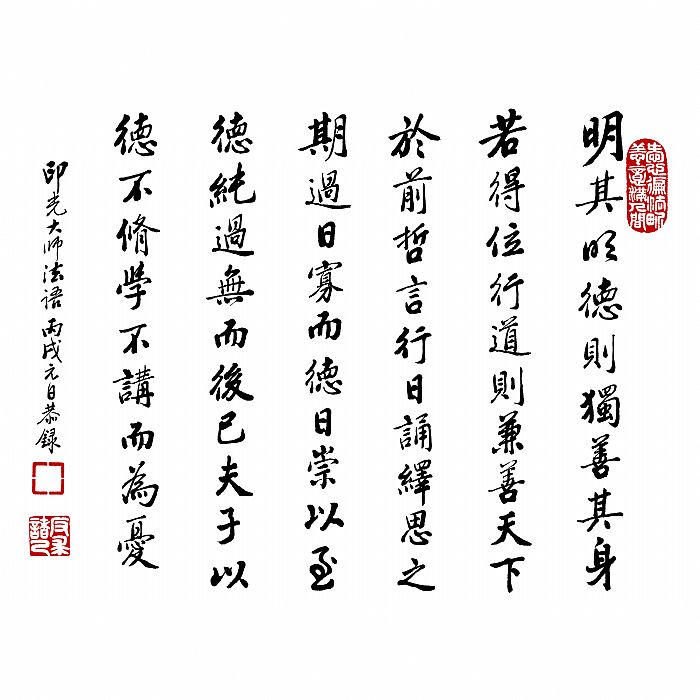 明其明德則獨善其身
若得位行道則兼善天下
於前哲言行日誦繹思之
期過日寡而德日崇以至
德純過無而後已夫子以
德不脩學不講而為憂
印光大师法语丙戌元日恭録